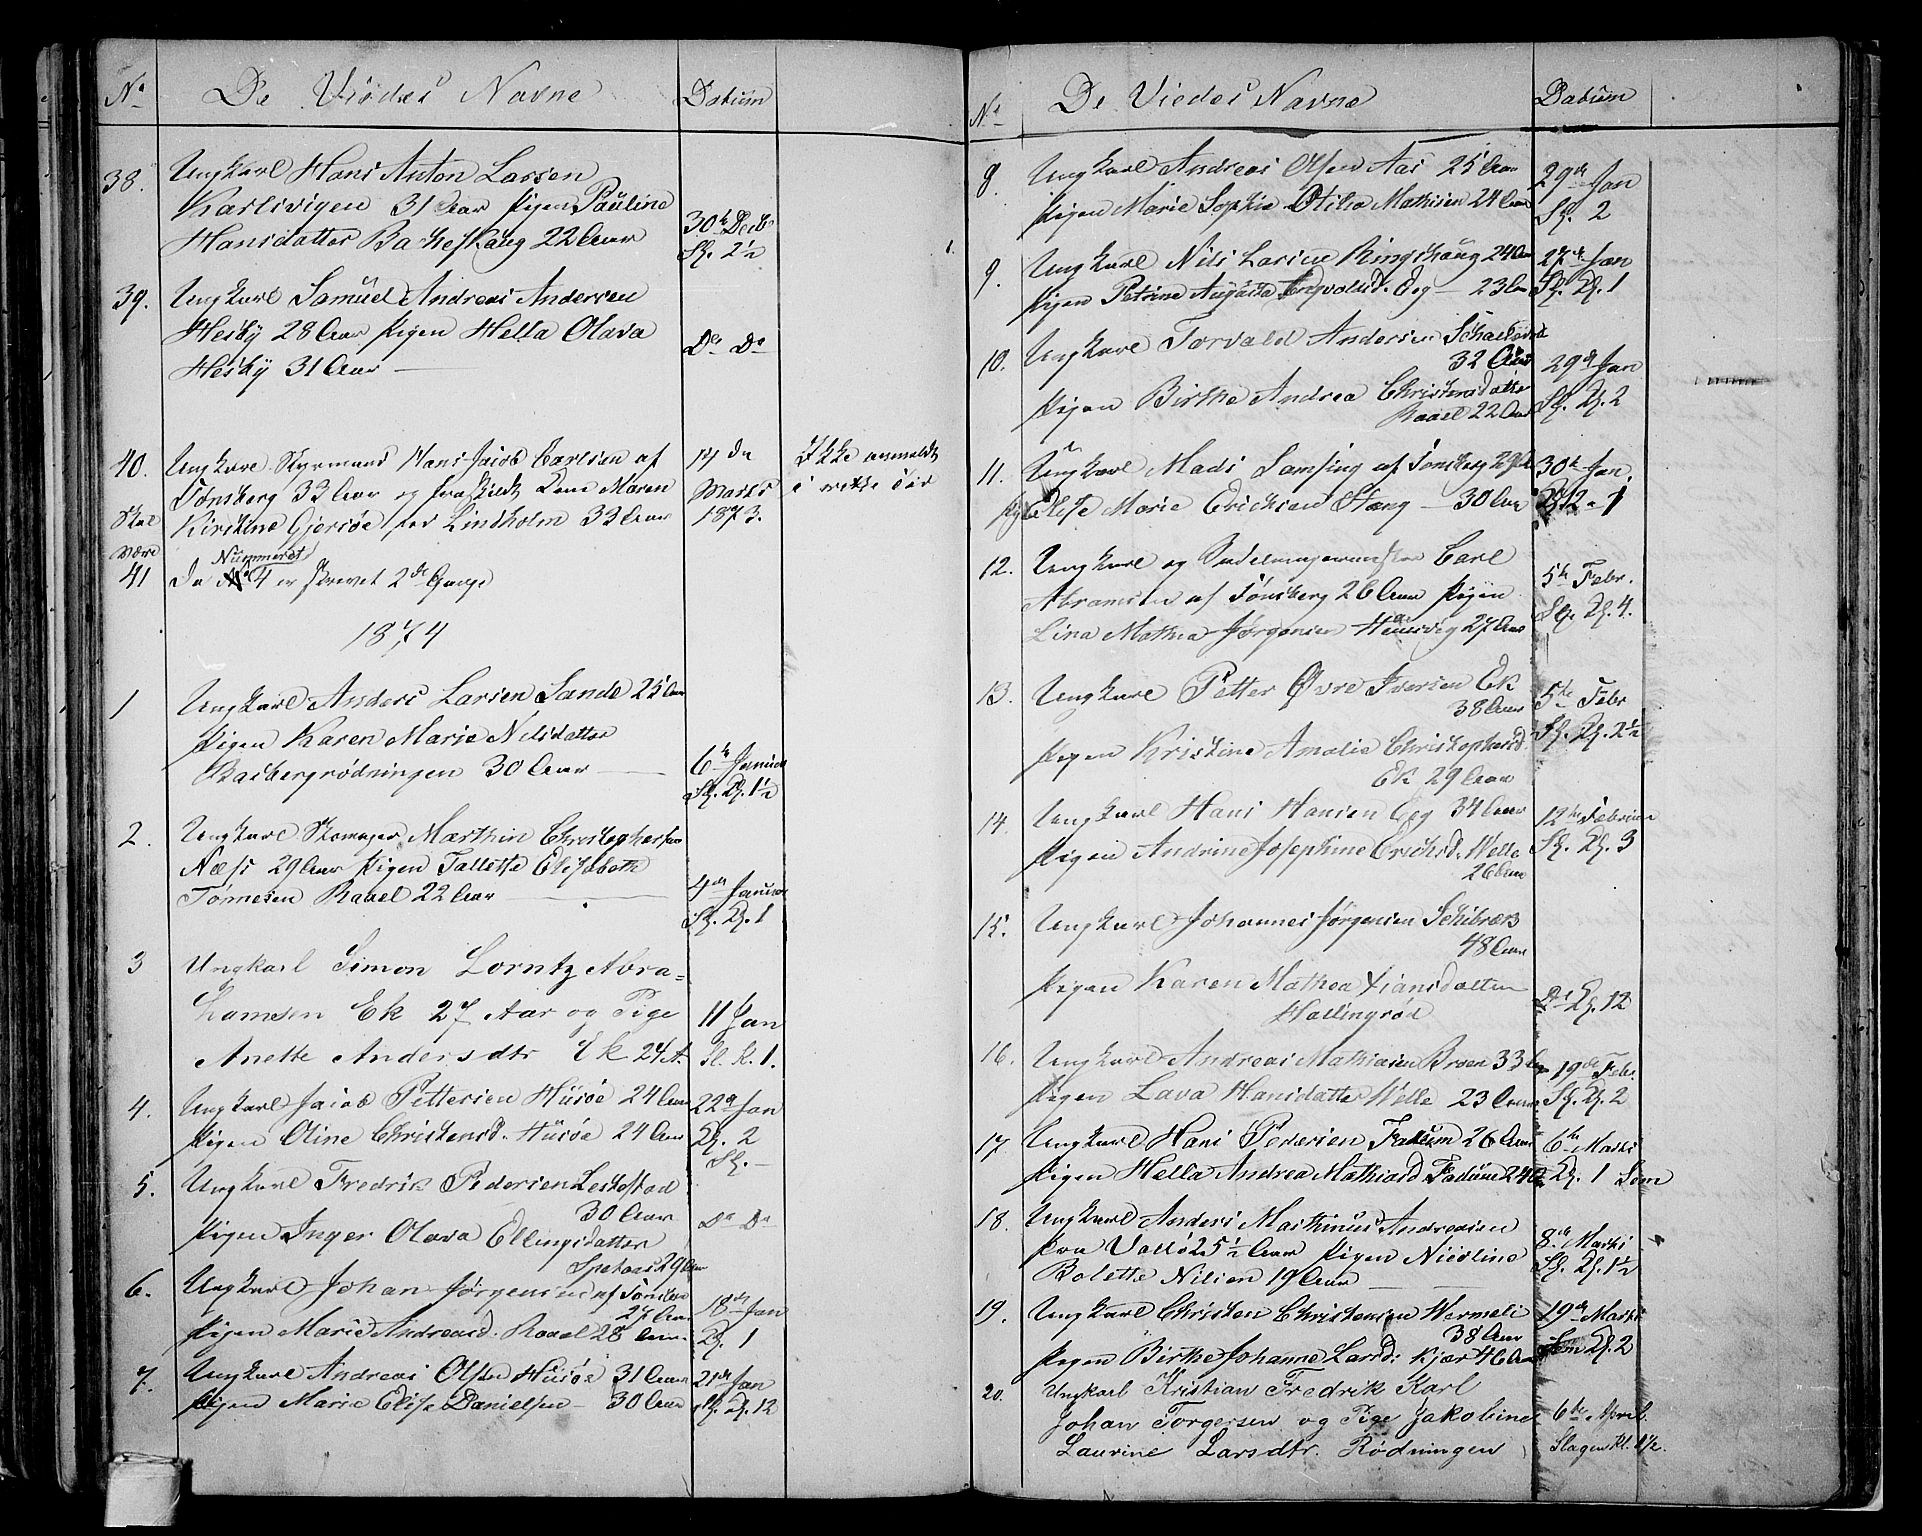 No De Viedes Navne Datum
38. Ungkarl Hans Anton Larsen
Karlsvigen 31 Aar Pigen Pauline
Hansdatter Bakeskaug 22 Aar 30te Decb
Kl. 2½
39. Ungkarl Samuel Andreas Andersen
Hesby 28 Aar Pigen Hella Olava
Hesby 31 Aar Do Do
40. Ungkarl Styrmand Hans Jacob Carlsen af
Tønsberg 33 Aar og fraskildt Kone Maren
Kirstine Gjersøe før Lindholm 33 Aar
14 de
Marts
1873.
Ikke anmeldt
i rette tid
Skal
være
41 da Nummeret 4 er skrevet 2de Gange
1874
1 Ungkarl Anders Larsen Sande 25 Aar
Pigen Karen Marie Nilsdatter
Basbergrødningen 30 Aar 6te Januar
Sl. K. 1½
2. Ungkarl Skomager Marthin Christophersen
Næss 29 Aar Pigen Tallette Elisabeth
Tønnesen Raael 22 Aar 4de Januar
Sl. K. 1
3 Ungkarl Simon Lorntz Abra-
hamsen Ek 27 Aar og Pige
Anette Andersdtr Ek 24 A. 11 Jan
Sl. K. 1.
4. Ungkarl Jacob Pettersen Husøe 24 Aar
Pigen Oline Christensd. Husøe 24 Aar
22de Jan
Kl. 2
Sl.
5. Ungkarl Fredrik Pedersen
30 Aar
Pigen Inger Olava Ellingsdatter
29 Aar
Do Do
6. Ungkarl Johan Jørgensen af Tønsberg
27 Aar
Pigen Marie Andreasd. Raael 28 Aar
18de Jan
Kl. 1
7. Ungkarl Andreas Olsen Husøe 31 Aar
Pigen Marie Elise Danielsen 30 Aar
21de Jan
Sl. Kl. 12
No De Viedes Navne Datum
8. Ungkarl Andreas Olsen Aas 25 Aar
Pigen Marie Sophie Otilia Mathisen 24 Aar
29de Jan
Kl. 2
9. Ungkarl Nils Larsen Ringshaug 24 Aar
Pigen Petrine Augusta Engvolsd. Eeg 23 Aar
27de Jan
Sl. Kl. 1
10. Ungkarl Torvald Andersen
32 Aar
Pigen Birthe Andrea Christensdatter
Raael 22 Aar
29de Jan
Sl. Kl. 2
11. Ungkarl Mads Samsing af Tønsberg 29 Aar
Pig Elise Marie Ericksen Stang 30 Aar
30te Jan.
Kl 12 - 1
12. Ungkarl og Sadelmagermester Carl
Abramsen af Tønsberg 26 Aar Pigen
Lina Mathea Jørgensen 27 Aar
5te Febr.
Sl. Kl. 4.
13. Ungkarl Petter Øvre Iversen Ek
38 Aar
Pigen Kristine Amalie Christophersd.
Ek 29 Aar
5te Febr
Sl. Kl. 2½
14. Ungkarl Hans Hansen Eeg 34 Aar
Pigen Andrine Josephine Erichsd. Welle
26 Aar
12te Februar
Sl. Kl. 3
15. Ungkarl Johannes Jørgensen
48 Aar
Pigen Karen Mathea Hansdatter
Hallingrød
Do Kl. 12
16. Ungkarl Andreas Mathiasen Broen 33 Aar
Pigen Lava Hansdatter Welle 23 Aar
19de Febr.
Sl. Kl. 2
17. Ungkarl Hans Pedersen Fadum 26 Aar
Pigen Hella Andrea Mathiasd Fadum 24 Aar
6te Marts
Kl. 1 Sem
18. Ungkarl Anders Marthinus Andreasen
fra Vallø 25½ Aar Pigen Nicoline
Bolette Nilsen 19 Aar
8de Marts
Sl. Kl. 1½
19. Ungkarl Christen Christensen Wermeli
38 Aar
Pigen Birthe Johanne Larsd: Kjær 46 Aar
19de Marts
Sem Kl. 2
20. Ungkarl Kristian Fredrik Karl
Johan Torgersen og Pige Jakobine
Laurine Larsdtr. Rødningen
6te April.
Slagen Kl. 1½.